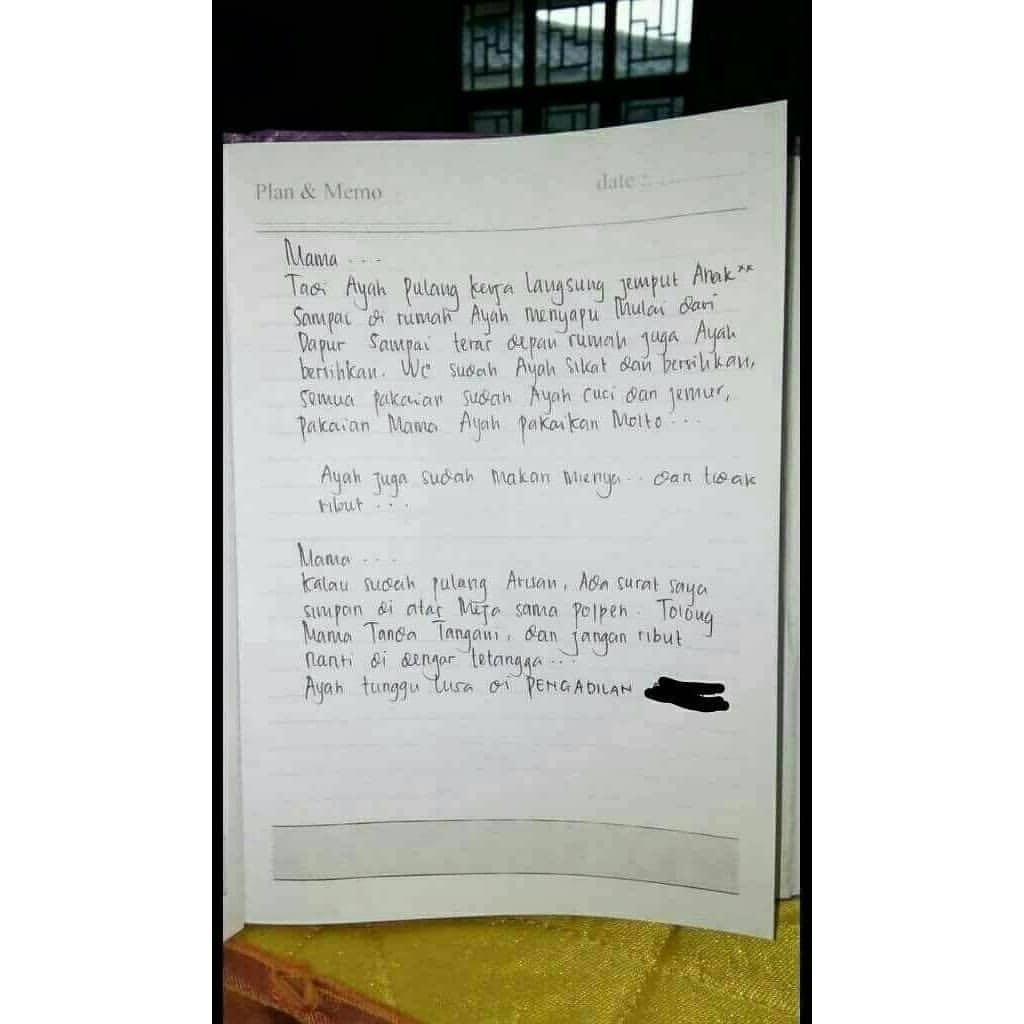 Plan & Memo
date :
Mama ...
Tadi Ayah pulang kerja langsung jemput Anak**
Sampai di rumah Ayah menyapu Mulai dari
Dapur Sampai teras depan rumah juga Ayah
bersihkan. WC sudah Ayah Sikat dan bersihkan,
Semua pakaian sudah Ayah cuci dan jemur,
pakaian Mama Ayah pakaikan Molto ...
Ayah juga sudah Makan Mienya .. dan tidak
ribut ...
Mama ...
Kalau sudah pulang Arisan, Ada surat saya
simpan di atas Meja sama polpen. Tolong
Mama Tanda Tangani, dan jangan ribut
nanti di dengar tetangga ...
Ayah tunggu Lusa di PENGADILAN